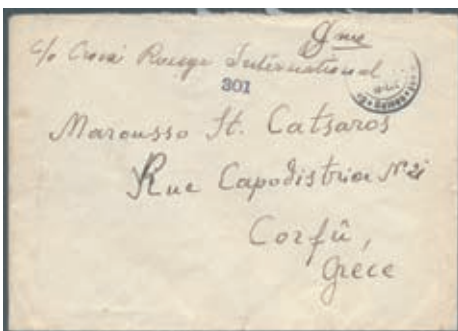 c/o Croix Rouge International
301
Marousso St. Catsaros
Rue Capodistria
Corfû,
Grece